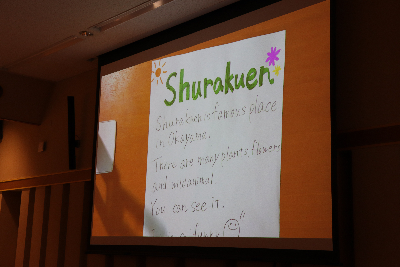 Shurakuen
Shurakuen is famous place
in Okayama.
There are many plants, flowers
and
You can see it.